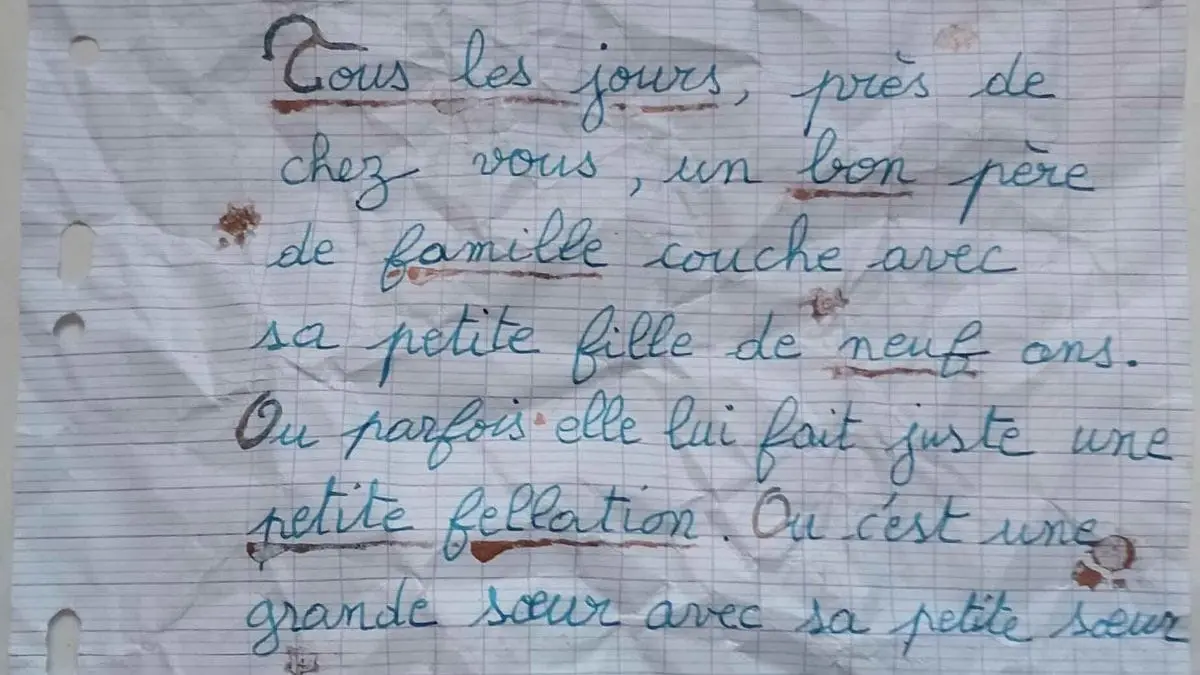 Tous les jours, près de
chez vous, un bon père
de famille couche avec
sa petite fille de neuf ans.
Ou parfois elle lui fait juste une
petite fellation. Ou c'est une
grande sœur avec sa petite sœur